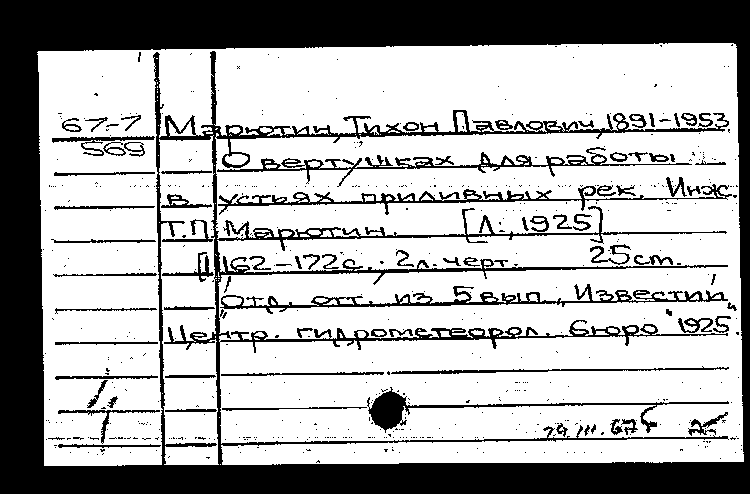 67-7
569
Марютин, Тихон Павлович, 1891-1953
О вертушках для работы
в устьях приливных рек. Инж.
Т.П. Марютин. [Л., 1925]
162-172 с.; 2 л. черт. 25 cm.
Отд. отт. из 5 вып. "Известий
Центр. гидрометеорол. бюро" 1925.